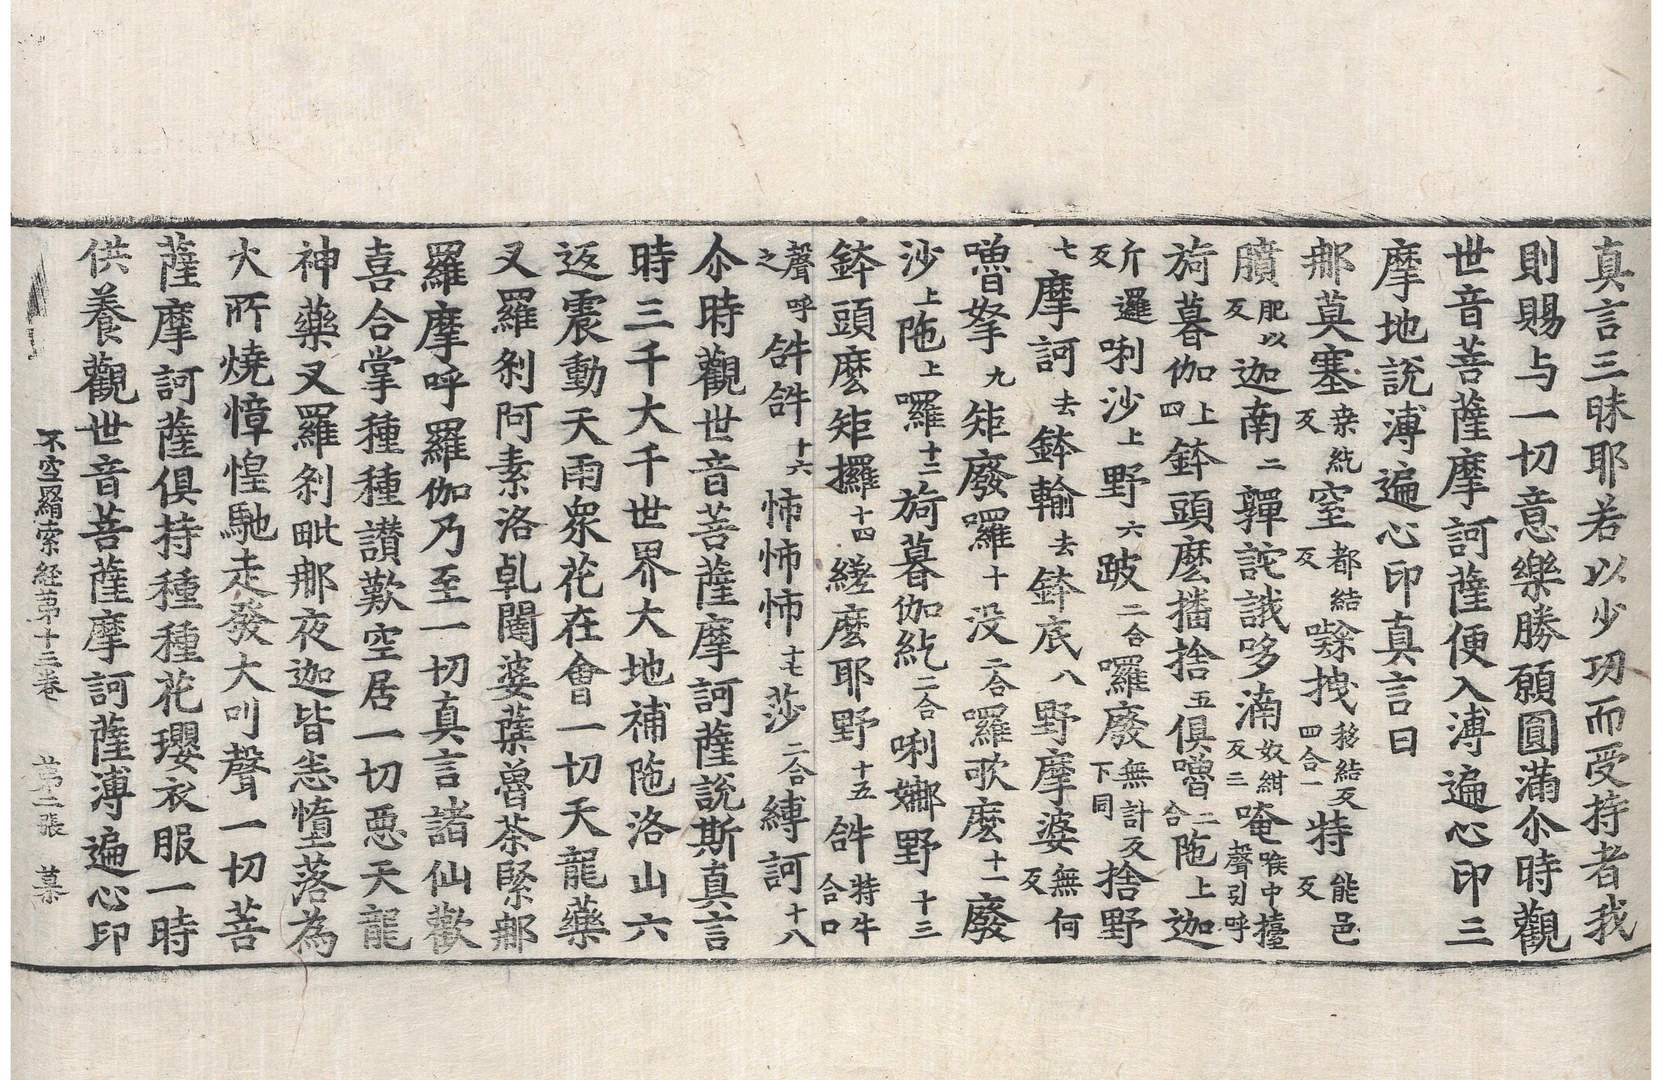 真言三昧耶若以少功而受持者我
則賜与一切意樂勝願圓滿尒時觀
世音菩薩摩訶薩便入溥遍心印三
摩地說溥遍心印真言曰
那莫塞桒紇反窒都結反㘑拽移結反四合一特能邑反
𦢊肥以反迦南二鄿詑誐哆湳奴紺反三唵喉中擡聲引呼
旖暮伽上四鉢頭麽播捨五俱嚕二合陁上迦
斤邏反唎沙上野六跛二合囉廢無計反下同捨野
七摩訶去鉢輸去鉢底八野摩婆無何反
嚕拏九矩廢囉十没二合囉歌麽十一廢
沙上陁上囉十二旖暮伽紇二合唎娜野十三
鉢頭麽矩攞十四縒麽耶野十五𤙖特牛合口
聲呼之𤙖𤙖十六怖怖怖十七莎二合縛訶十八
尒時觀世音菩薩摩訶薩說斯真言
時三千大千世界大地補陁洛山六
返震動天雨衆花在會一切天龍藥
叉羅刹阿素洛乹闥婆蘖魯茶緊那
羅摩呼羅伽乃至一切真言諸仙歡
喜合掌種種讃歎空居一切惡天龍
神藥叉羅刹毗那夜迦皆恚墮落為
火所燒慞惶馳走發大叫聲一切菩
薩摩訶薩俱持種種花瓔衣服一時
供養觀世音菩薩摩訶薩溥遍心印
不空羂索経第十三卷 第二張 墓